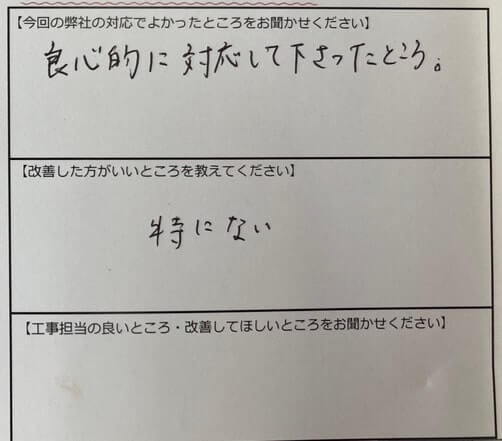 【今回の弊社の対応でよかったところをお聞かせください】
良心的に対応して下さったところ。
【改善した方がいいところを教えてください】
特にない
【工事担当の良いところ・改善してほしいところをお聞かせください】